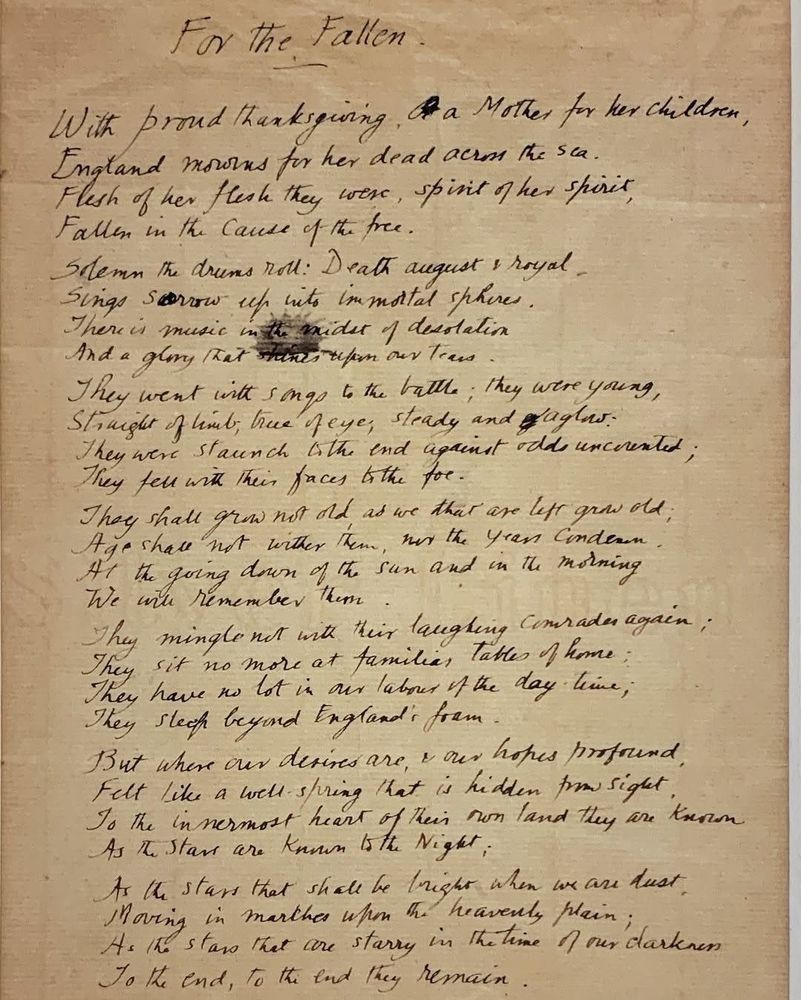 For the Fallen.
With proud thanksgiving, a Mother for her children,
England mourns for her dead across the sea.
Flesh of her flesh they were, spirit of her spirit,
Fallen in the Cause of the free.
Solemn the drums roll: Death august & royal
Sings sorrow up into immortal spheres.
There is music in the midst of desolation
And a glory that shines upon our tears.
They went with songs to the battle; they were young,
Straight of limb, true of eye, steady and aglow:
They were staunch to the end against odds uncounted;
They fell with their faces to the foe.
They shall grow not old, as we that are left grow old;
Age shall not wither them, nor the years condemn.
At the going down of the sun and in the morning
We will remember them.
They mingle not with their laughing comrades again;
They sit no more at familiar tables of home;
They have no lot in our labour of the day-time;
They sleep beyond England's foam.
But where our desires are, & our hopes profound,
Felt like a well-spring that is hidden from sight,
To the innermost heart of their own land they are known
As the stars are known to the Night;
As the stars that shall be bright when we are dust,
Moving in marches upon the heavenly plain;
As the stars that are starry in the time of our darkness
To the end, to the end they remain.